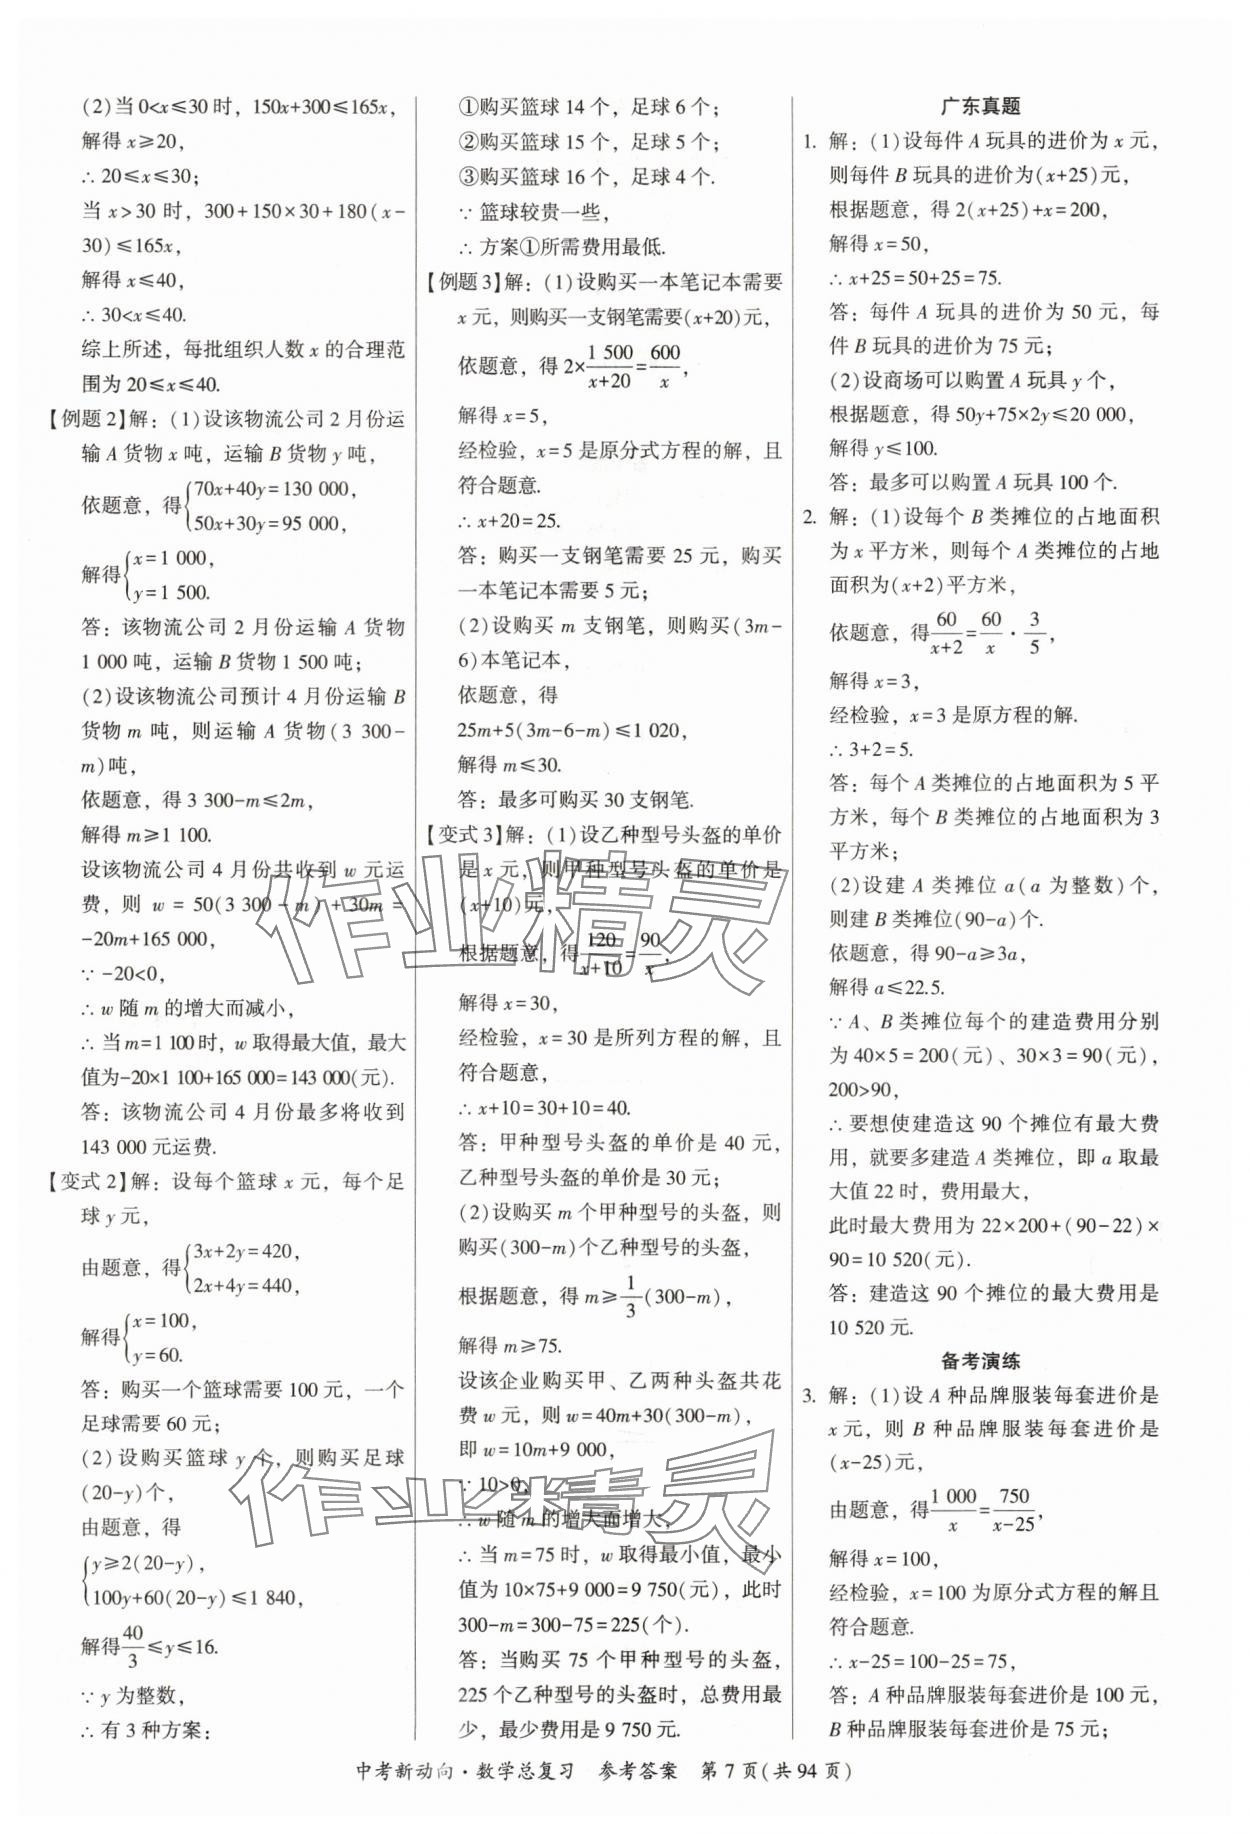 (2)当0<x≤30时，150x+300≤165x，
解得x≥20，
∴20≤x≤30；
当x>30时，300+150×30+180(x-
30)≤165x，
解得x≤40，
∴30<x≤40.
综上所述，每批组织人数x的合理范
围为20≤x≤40.
【例题2】解：(1)设该物流公司2月份运
输A货物x吨，运输B货物y吨，
依题意，得{70x+40y=130 000，
50x+30y=95 000，
解得{x=1 000，
y=1 500.
答：该物流公司2月份运输A货物
1 000吨，运输B货物1 500吨；
(2)设该物流公司预计4月份运输B
货物m吨，则运输A货物(3 300-
m)吨，
依题意，得3 300-m≤2m，
解得m≥1 100.
设该物流公司4月份共收到w元运
费，则w=50(3 300-m)+30m=
-20m+165 000，
∵-20<0，
∴w随m的增大而减小，
∴当m=1 100时，w取得最大值，最大
值为-20×1 100+165 000=143 000(元).
答：该物流公司4月份最多将收到
143 000元运费.
【变式2】解：设每个篮球x元，每个足
球y元，
由题意，得{3x+2y=420，
2x+4y=440，
解得{x=100，
y=60.
答：购买一个篮球需要100元，一个
足球需要60元；
(2)设购买篮球y个，则购买足球
(20-y)个，
由题意，得
{y≥2(20-y)，
100y+60(20-y)≤1 840，
解得40/3≤y≤16.
∵y为整数，
∴有3种方案：
①购买篮球14个，足球6个；
②购买篮球15个，足球5个；
③购买篮球16个，足球4个.
∵篮球较贵一些，
∴方案①所需费用最低.
【例题3】解：(1)设购买一本笔记本需要
x元，则购买一支钢笔需要(x+20)元，
依题意，得2×1 500/(x+20)=600/x，
解得x=5，
经检验，x=5是原分式方程的解，且
符合题意.
∴x+20=25.
答：购买一支钢笔需要25元，购买
一本笔记本需要5元；
(2)设购买m支钢笔，则购买(3m-
6)本笔记本，
依题意，得
25m+5(3m-6-m)≤1 020，
解得m≤30.
答：最多可购买30支钢笔.
【变式3】解：(1)设乙种型号头盔的单价
是x元，则甲种型号头盔的单价是
(x+10)元，
根据题意，得120/(x+10)=90/x，
解得x=30，
经检验，x=30是所列方程的解，且
符合题意，
∴x+10=30+10=40.
答：甲种型号头盔的单价是40元，
乙种型号头盔的单价是30元；
(2)设购买m个甲种型号的头盔，则
购买(300-m)个乙种型号的头盔，
根据题意，得m≥1/3(300-m)，
解得m≥75.
设该企业购买甲、乙两种头盔共花
费w元，则w=40m+30(300-m)，
即w=10m+9 000，
∵10>0，
∴w随m的增大而增大，
∴当m=75时，w取得最小值，最小
值为10×75+9 000=9 750(元)，此时
300-m=300-75=225(个).
答：当购买75个甲种型号的头盔，
225个乙种型号的头盔时，总费用最
少，最少费用是9 750元.
广东真题
1. 解：(1)设每件A玩具的进价为x元，
则每件B玩具的进价为(x+25)元，
根据题意，得2(x+25)+x=200，
解得x=50，
∴x+25=50+25=75.
答：每件A玩具的进价为50元，每
件B玩具的进价为75元；
(2)设商场可以购置A玩具y个，
根据题意，得50y+75×2y≤20 000，
解得y≤100.
答：最多可以购置A玩具100个.
2. 解：(1)设每个B类摊位的占地面积
为x平方米，则每个A类摊位的占地
面积为(x+2)平方米，
依题意，得60/(x+2)=60/x·3/5，
解得x=3，
经检验，x=3是原方程的解.
∴3+2=5.
答：每个A类摊位的占地面积为5平
方米，每个B类摊位的占地面积为3
平方米；
(2)设建A类摊位a(a为整数)个，
则建B类摊位(90-a)个.
依题意，得90-a≥3a，
解得a≤22.5.
∵A、B类摊位每个的建造费用分别
为40×5=200(元)、30×3=90(元)，
200>90，
∴要想使建造这90个摊位有最大费
用，就要多建造A类摊位，即a取最
大值22时，费用最大，
此时最大费用为22×200+(90-22)×
90=10 520(元).
答：建造这90个摊位的最大费用是
10 520元.
备考演练
3. 解：(1)设A种品牌服装每套进价是
x元，则B种品牌服装每套进价是
(x-25)元，
由题意，得1 000/x=750/(x-25)，
解得x=100，
经检验，x=100为原分式方程的解且
符合题意.
∴x-25=100-25=75，
答：A种品牌服装每套进价是100元，
B种品牌服装每套进价是75元；
中考新动向·数学总复习 参考答案 第7页(共94页)
作业精灵
作业精灵